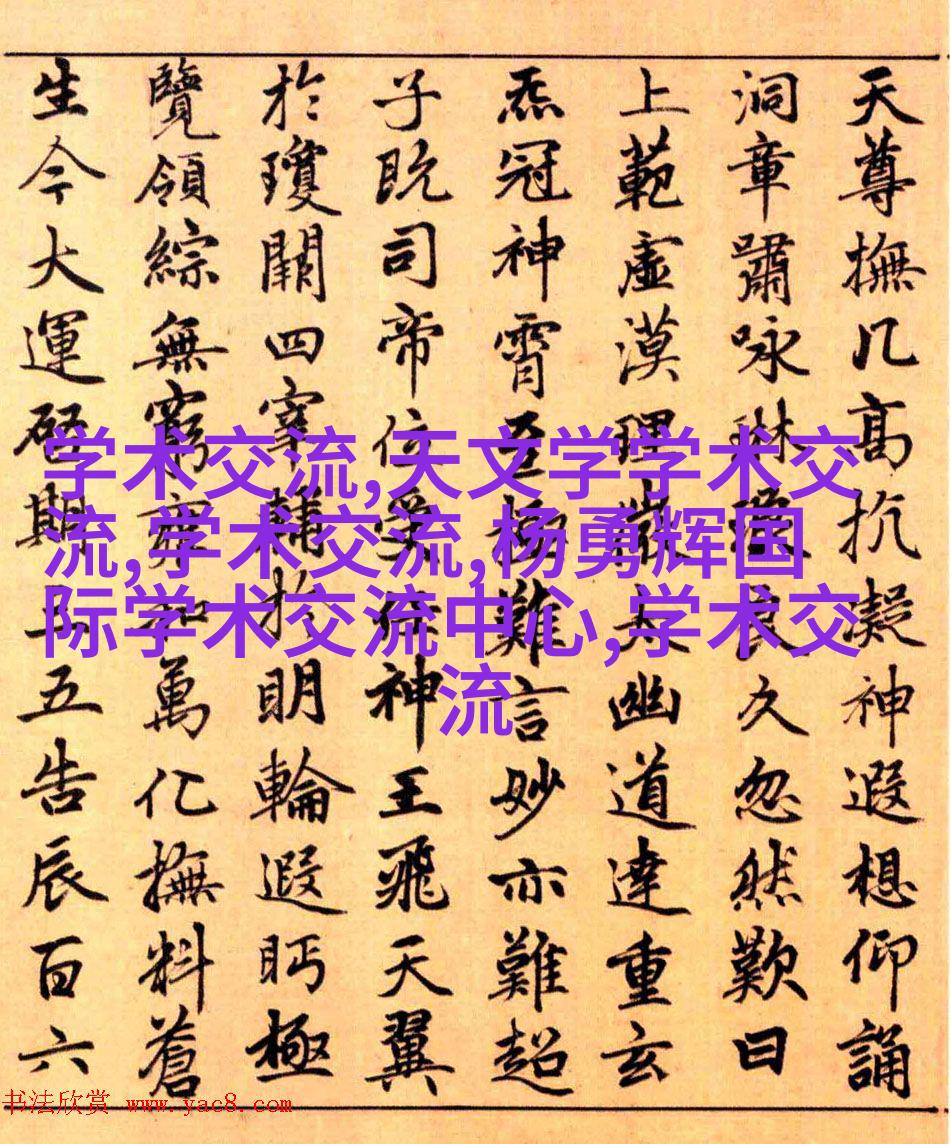 天尊撫几高抗凝神遐想仰誦
洞章嘯咏琳良久忽然歎曰
上範虛漠理嚴幽道達重玄
炁冠神霄至極難言妙亦難超
子既司帝位神王飛天翼
於瓊闕四宰輔於明輪遐眄極
覽領綜無窮和萬化撫料蒼
生今大運啓期三五告辰百六
学术交流,天文学学术交
流,学术交流,杨勇辉国
际学术交流中心,学术交
流
书法欣赏 www.yac8.com